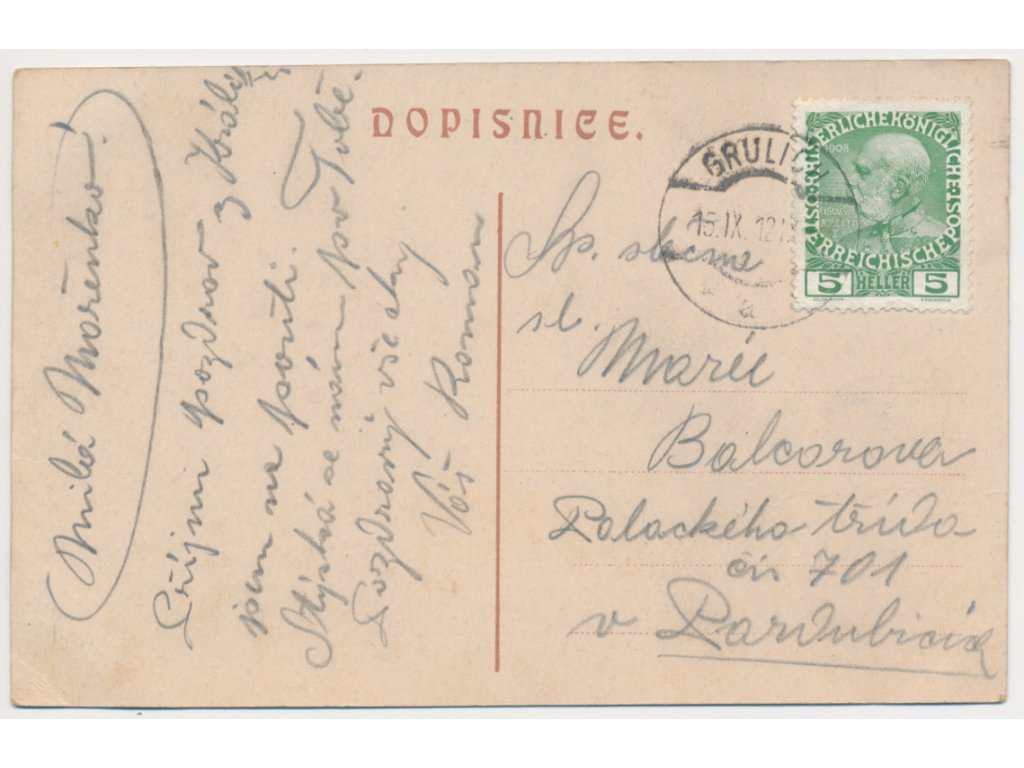 DOPISNICE.
Milá Mařenko!
Přijmi pozdrav z Králík
jsem na pouti.
Stýská se mám po Tobě.
Pozdravuj všechny
Váš Roman
GRULICH
15.IX.12
a
KAISERLICHE KÖNIGLICHE
ÖSTERREICHISCHE POST
1908
5 HELLER 5
Sp. slečna
sl.
Marii
Balcarova
Palackého třída
čís 701
v Pardubicích